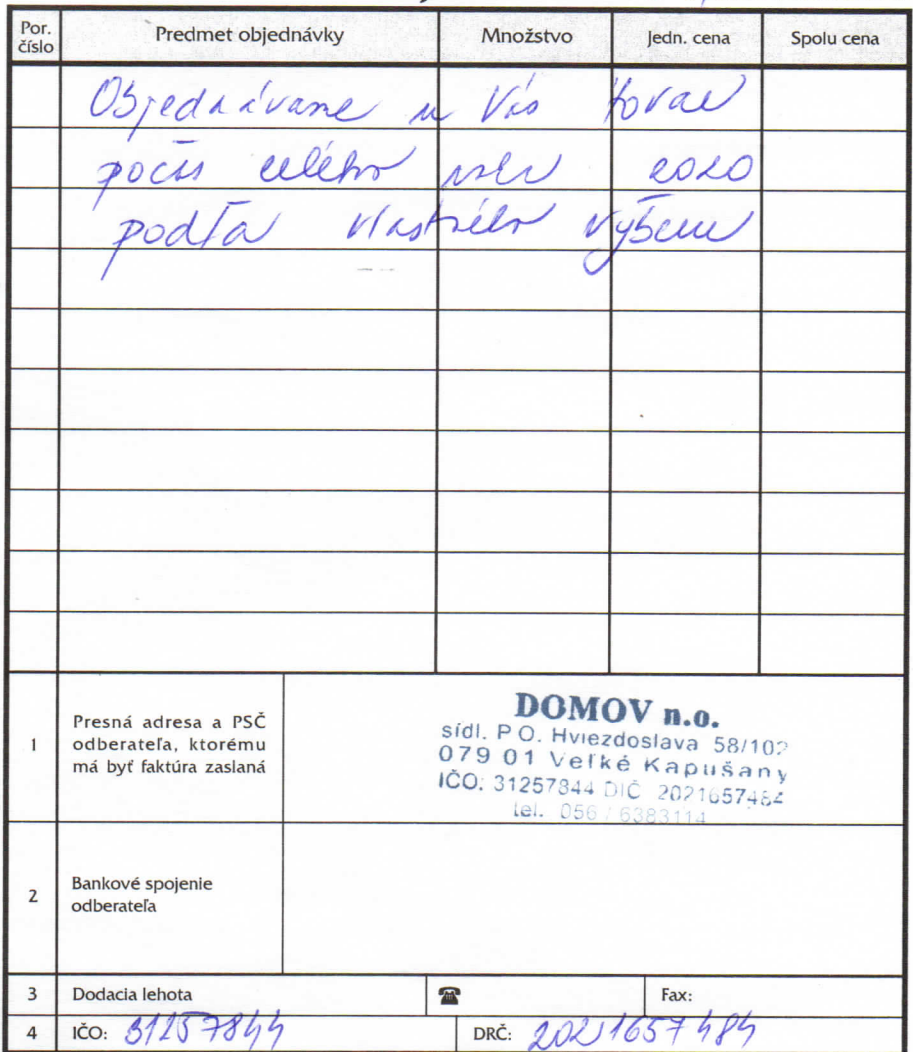 Por. číslo Predmet objednávky Množstvo Jedn. cena Spolu cena
Objednávame u Vás tovar
počas celého roku 2020
podľa vlastného výberu
1 Presná adresa a PSČ odberateľa, ktorému má byť faktúra zaslaná
DOMOV n.o.
sídl. P.O. Hviezdoslava 58/102
079 01 Veľké Kapušany
IČO: 31257844 DIČ 2021657484
tel. 056 / 6383114
2 Bankové spojenie odberateľa
3 Dodacia lehota ☎ Fax:
4 IČO: 31257844 DRČ: 2021657484